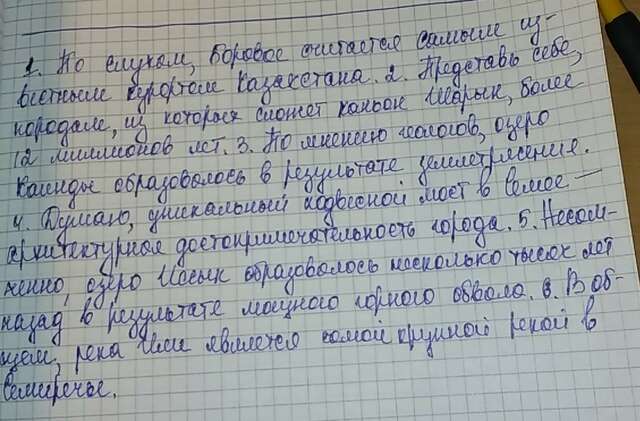 1. По слухам, Боровое считается самыме из-
вестным курортом Казахстана. 2. Представь себе,
породам, из которых сложет каньон Шарын, более
12 миллионов лет. 3. По мнению геологов, озеро
Каинды образовалось в результате землетрясение.
4. Думаю, уникальный подвесной мост в Семее —
архитектурная достопримечательность города. 5. Несом-
ненно, озеро Иссык образовалось несколько тысяч лет
назад в результате мощного горного обвала. 6. В об-
щем, река Или является самой крупной рекой в
Семиречье.